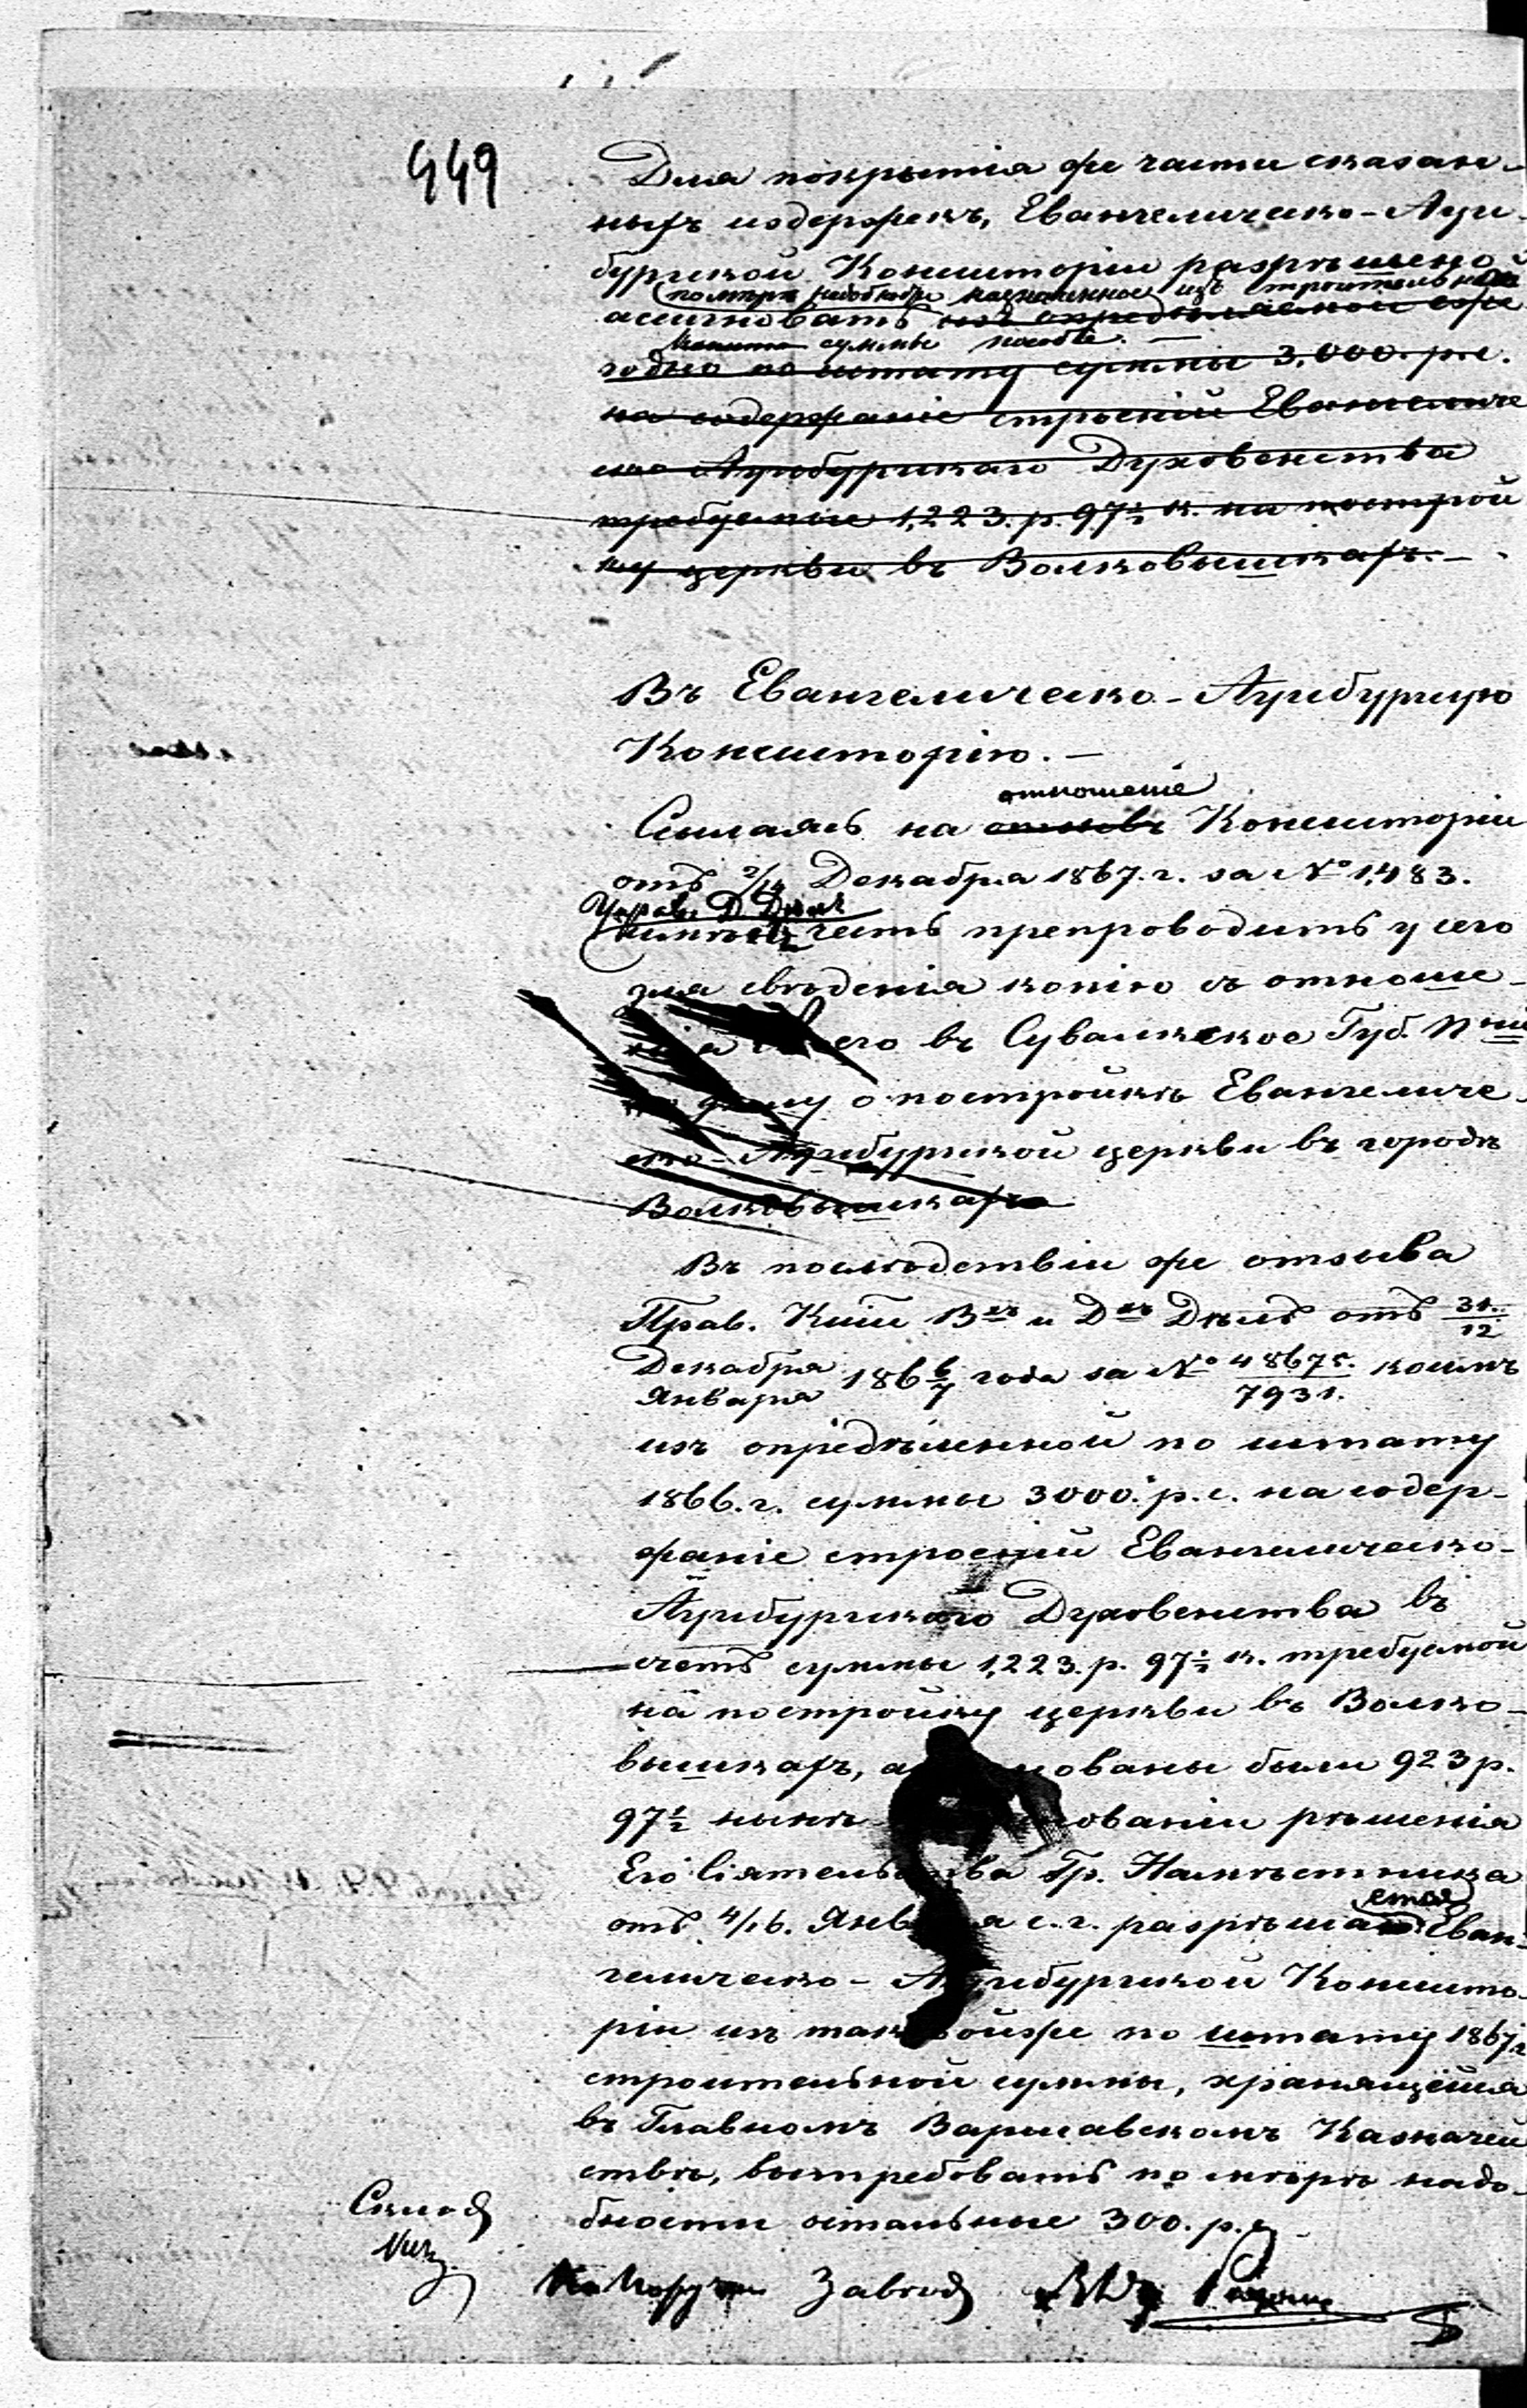 449
Для покрытія же части сказан-
ныхъ издержекъ, Евангелическо-Аугс-
бургской Консисторіи разрѣшено
по мѣрѣ надобности назначенное изъ строительной
ассигновать изъ опредѣляемой еже
суммы пособіе. —
годно по штату суммы 3.000. р.с.
на содержаніе строеній Евангеличе
ско Аугсбургскаго Духовенства
требуемые 1,223. р. 97½ к. на построй
ку церкви въ Волковышкахъ. —
Въ Евангелическо-Аугсбургскую
Консисторію. —
отношеніе
Ссылаясь на отзывъ Консисторіи
отъ 2/14 Декабря 1867. г. за № 1,483.
Управ. Д. Дух
имѣетъ честь препроводить у сего
для свѣденія копію съ отноше-
нія его въ Сувалкское Губ. П
о постройкѣ Евангеличе-
ско-Аугсбургской церкви въ городѣ
Волковышкахъ
Въ послѣдствіи же отзыва
Прав. Ксіи Вхъ и Дхъ Дѣлъ отъ 31./12
Декабря/Января 186 6/7 года за № 48675./7931. коимъ
изъ опредѣленной по штату
1866. г. суммы 3000. р. с. на содер-
жаніе строеній Евангелическо-
Аугсбургскаго Духовенства въ
счетъ суммы 1,223. р. 97½ к. требуемой
на постройку церкви въ Волко-
вышкахъ, а нованы были 923 р.
97½ нынѣ ованіи рѣшенія
Его Сіятельства Гр. Намѣстника
ется
отъ 4/16. Января с. г. разрѣша Еван-
гелическо-Аугсбургской Консисто-
ріи изъ таковойже по штату 1867 г
строительной суммы, хранящейся
въ Главномъ Варшавскомъ Казначей
ствѣ, вытребовать по мѣрѣ надо-
бности остальные 300. р. с. —